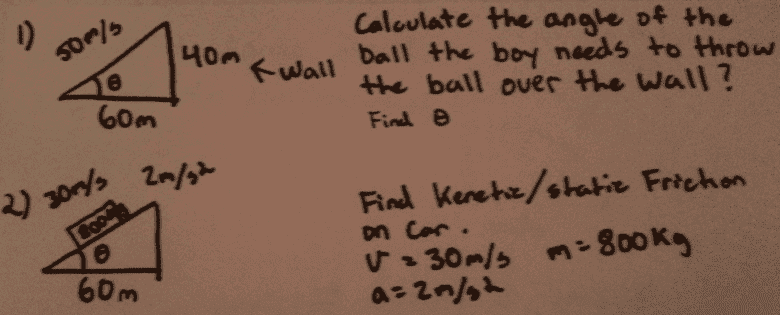 1) 50m/s
40m ← wall
θ
60m
Calculate the angle of the
ball the boy needs to throw
the ball over the wall?
Find θ
2) 30m/s 2m/s²
800kg
θ
60m
Find Kenetic/static Friction
on Car.
v = 30m/s m = 800Kg
a = 2m/s²